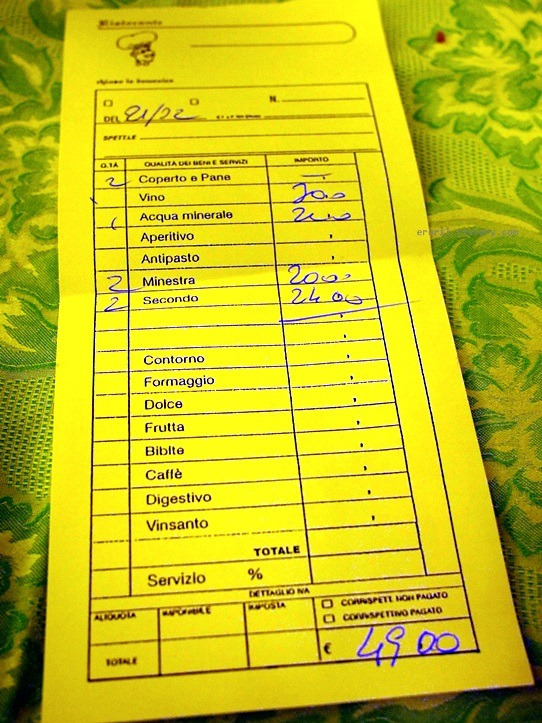 Ristorante
chiuso la Domenica
N.
DEL 21/22
SPETT.LE
Q.TÀ QUALITÀ DEI BENI E SERVIZI IMPORTO
2 Coperto e Pane —
Vino 300
1 Acqua minerale 200
Aperitivo
Antipasto
2 Minestra 2000
2 Secondo 2400
Contorno
Formaggio
Dolce
Frutta
Bibite
Caffè
Digestivo
Vinsanto
TOTALE
Servizio %
DETTAGLIO IVA
ALIQUOTA IMPONIBILE IMPOSTA
CORRISPETT. NON PAGATO
CORRISPETTIVO PAGATO
TOTALE € 49 00